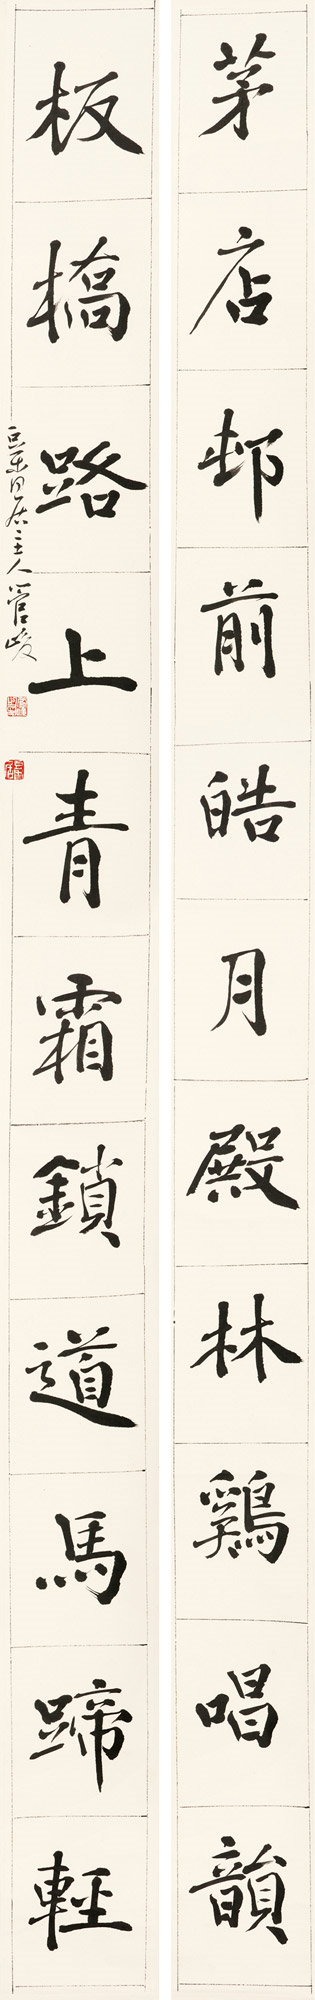 茅店邨前皓月殿林鷄唱韻
板橋路上青霜鎖道馬蹄輕
主人管峻